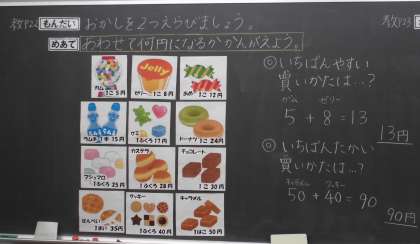 教P22 もんだい おかしを2つえらびましょう。
めあて あわせて何円になるかかんがえよう。
ガム 1こ 5円
Jelly
ゼリー 1こ 8円
あめ 1こ 12円
ラムネ 1本 15円
グミ
1ふくろ 17円
ドーナツ 1こ 24円
マシュマロ
1ふくろ 25円
カステラ
1ふくろ 28円
チョコレート
1こ 30円
せんべい
1まい 35円
クッキー
1ふくろ 40円
キャラメル
1はこ 50円
◎いちばんやすい
買いかたは…?
ガム ゼリー
5+8=13
13円
◎いちばんたかい
買いかたは…?
キャラメル クッキー
50+40=90
90円
教P23